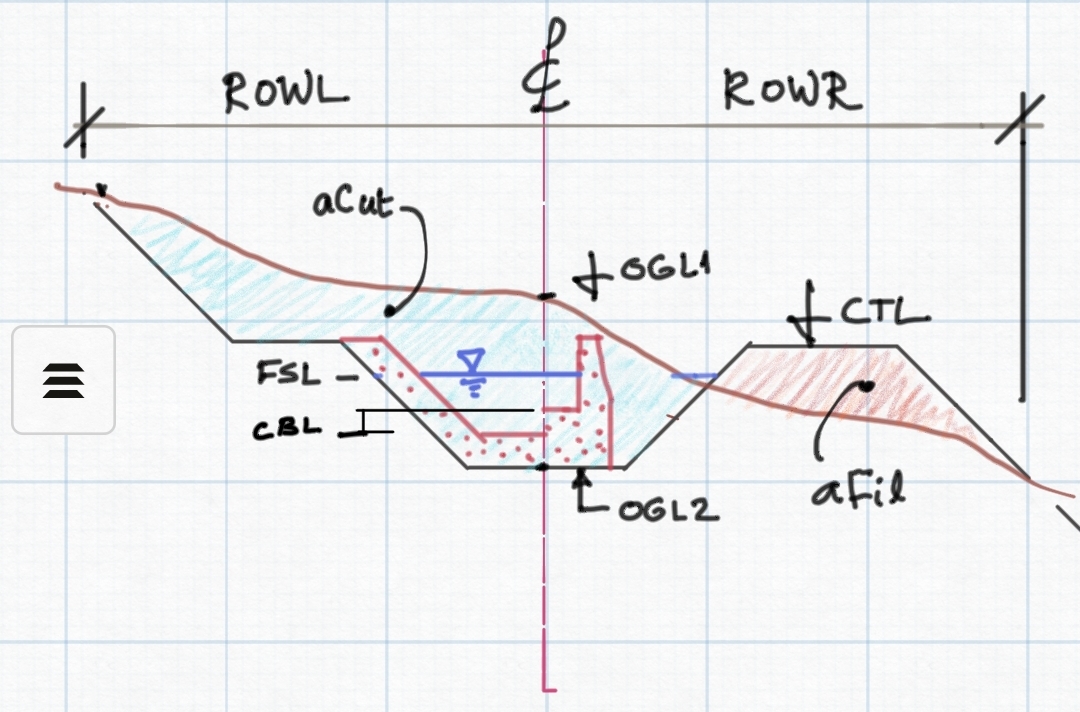 ROWL
℄
ROWR
aCut
OGL1
CTL
FSL
CBL
aFil
OGL2